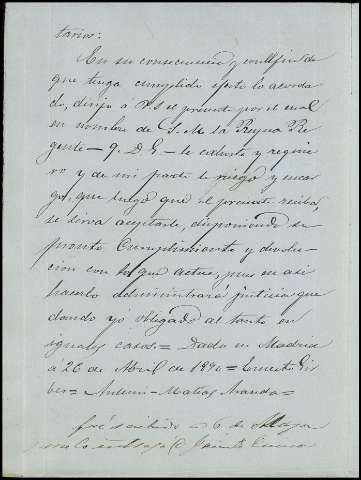 tarios:
En su consecuencia y con el fin de
que tenga cumplido efecto lo acorda
do, dirijo á V.S. el presente por el cual
en nombre de S. M. la Reyna Re
gente - q. D. G. - le exhorto y requie
ro y de mi parte le ruego y encar
go, que luego que el presente reciba,
se sirva aceptarlo, disponiendo su
pronto cumplimiento y devolu-
cion con lo que actue, pues en asi
hacerlo administrará justicia que
dando yó obligado al tanto en
iguales casos. = Dado en Madrid
á 26 de Abril de 1890 = Ernesto
= Antemi = Matias Aranda =
á 6 de